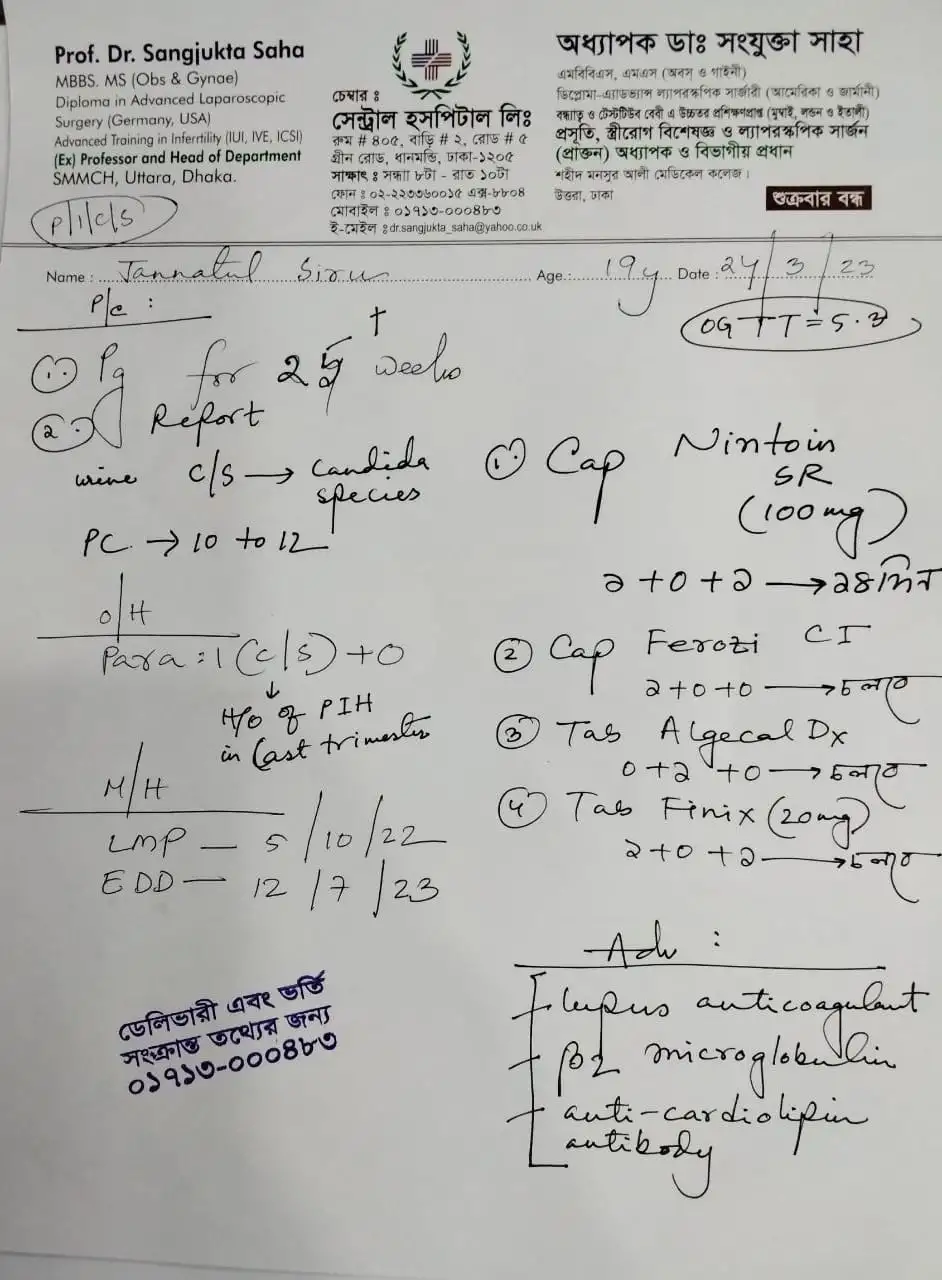 Prof. Dr. Sangjukta Saha
MBBS. MS (Obs & Gynae)
Diploma in Advanced Laparoscopic
Surgery (Germany, USA)
Advanced Training in Infertility (IUI, IVE, ICSI)
(Ex) Professor and Head of Department
SMMCH, Uttara, Dhaka.
P/1/c/s
চেম্বার ঃ
সেন্ট্রাল হসপিটাল লিঃ
রুম # ৪০৫, বাড়ি # ২, রোড # ৫
গ্রীন রোড, ধানমন্ডি, ঢাকা-১২০৫
সাক্ষাৎ ঃ সন্ধ্যা ৮টা - রাত ১০টা
ফোন ঃ ০২-২২৩৩৬০০১৫ এক্স-৮৮০৪
মোবাইল ঃ ০১৭১৩-০০০৪৮৩
ই-মেইল ঃ dr.sangjukta_saha@yahoo.co.uk
অধ্যাপক ডাঃ সংযুক্তা সাহা
এমবিবিএস, এমএস (অবস ও গাইনী)
ডিপ্লোমা-এ্যাডভ্যান্স ল্যাপরস্কপিক সার্জারী (আমেরিকা ও জার্মানী)
বন্ধ্যাত্ব ও টেস্টটিউব বেবী এ উচ্চতর প্রশিক্ষণপ্রাপ্ত (মুম্বাই, লন্ডন ও ইতালী)
প্রসূতি, স্ত্রীরোগ বিশেষজ্ঞ ও ল্যাপরস্কপিক সার্জন
(প্রাক্তন) অধ্যাপক ও বিভাগীয় প্রধান
শহীদ মনসুর আলী মেডিকেল কলেজ।
উত্তরা, ঢাকা
শুক্রবার বন্ধ
Name : Jannatul Age.: 19y Date : 24/3/23
P/c :
OGTT = 5.3
① Pg for weeks
② Report
urine c/s → candida
species
PC. → 10 to 12
O/H
Para : 1 (c/s) + 0
↓
H/o of PIH
in last trimester
M/H
LMP — 5/10/22
EDD — 12/7/23
① Cap Nintoin
SR
(100 mg)
১ + ০ + ১ → ১৪ দিন
② Cap Ferozi CI
১ + ০ + ০ → চলবে
③ Tab Algecal Dx
০ + ১ + ০ → চলবে
④ Tab Finix (20mg)
১ + ০ + ১ → চলবে
Adv :
lupus anticoagulant
β2 microglobulin
anti-cardiolipin
antibody
ডেলিভারী এবং ভর্তি
সংক্রান্ত তথ্যের জন্য
০১৭১৩-০০০৪৮৩